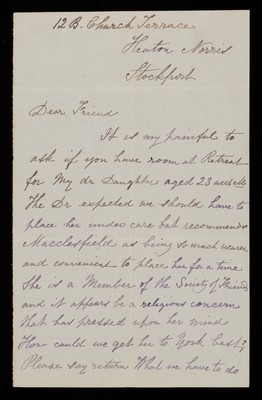 12 B. Church Terrace
Heaton Norris
Stockport
Dear Friend
It is my painful to
ask if you have room at Retreat
for My dr Daughter aged 23
The Dr expected we should have to
place her under care but recommends
Macclesfield as being so much nearer
and convenient to place her for a time
She is a Member of the Society of Friends
and it appears be a religious concern
that has pressed upon her mind
How could we get her to York best?
Please say return What we have to do